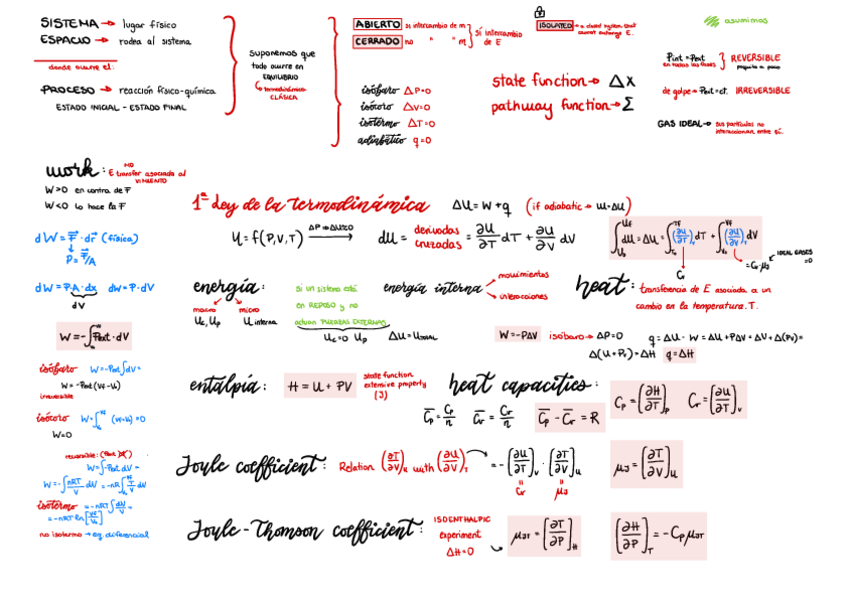 SISTEMA → lugar físico
ESPACIO → rodea al sistema
donde ocurre el:
PROCESO → reacción físico-química
ESTADO INICIAL - ESTADO FINAL
suponemos que
todo ocurre en
EQUILIBRIO
termodinámica
CLÁSICA
ABIERTO si intercambio de m
CERRADO no " " m
sí intercambio
de E
isóbaro ΔP=0
isócoro ΔV=0
isotérmo ΔT=0
adiabático q=0
ISOLATED → a closed system that
cannot exchange E.
state function → Δx
pathway function → Σ
asumimos
Pint = Pext
en todas las fases
REVERSIBLE
poquito a poco
de golpe → Pext = ct. IRREVERSIBLE
GAS IDEAL → sus partículas no
interaccionan entre sí.
work: E transfer asociada al
MOVIMIENTO
W>0 en contra de F
W<0 lo hace la F
dW = F · dr (física)
P = F/A
dW = P·A·dx dW = P·dV
dV
W = -∫Pext·dV
isóbaro W = -Pext∫dV =
W = -Pext(Vf-Vi)
irreversible
isócoro (Vf=Vi) = 0
W=0
reversible:
W = ∫-Pext dV =
W = -∫nRT/V dV = -nR∫T/V dV
isotérmo = -nRT∫dV/V =
= -nRT ln[Vf/V₀]
no isotermo → eq. diferencial
1ª Ley de la termodinámica ΔU = W + q (if adiabatic → W=ΔU)
U = f(P,V,T)
dU = derivadas cruzadas = ∂U/∂T dT + ∂U/∂V dV
∫dU = ΔU = ∫(∂U/∂T)dT + ∫(∂U/∂V)dV
IDEAL GASES
=0
energía:
macro micro
Uc, Up U interna
si un sistema está
en REPOSO y no
actúan FUERZAS EXTERNAS
Uc = 0 Up ΔU = UTOTAL
energía interna
movimientos
interacciones
heat: transferencia de E asociada a un
cambio en la temperatura. T.
W = -PΔV isóbaro → ΔP=0 q = ΔU - W = ΔU + PΔV = ΔU + Δ(PV) =
Δ(U+PV) = ΔH q = ΔH
entalpía: H = U + PV
state function
extensive property
(J)
heat capacities:
C̅p = Cp/n C̅v = Cv/n C̅p - C̅v = R
Cp = [∂H/∂T]p Cv = [∂U/∂T]v
Joule coefficient: Relation (∂T/∂V)U with (∂U/∂V)T = -[∂U/∂T]v · [∂T/∂V]U
Cv μJ
μJ = [∂T/∂V]U
Joule-Thomson coefficient:
ISOENTHALPIC
experiment
ΔH=0
μJT = [∂T/∂P]H
[∂H/∂P]T = -Cp μJT